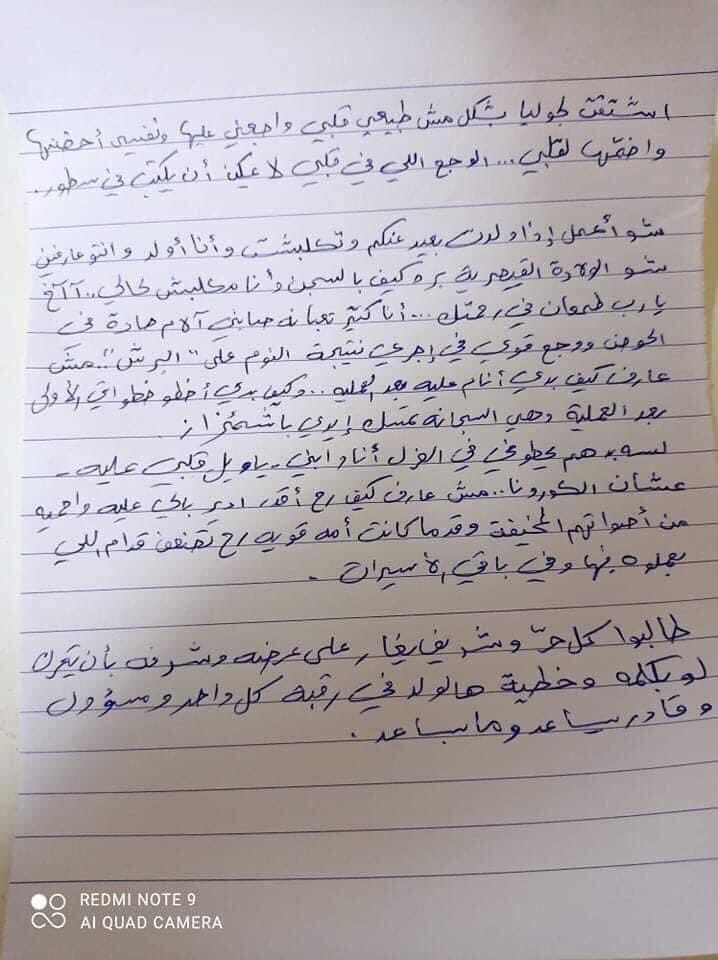 اشتقت لجوليا بشكل مش طبيعي قلبي واجعني عليها ونفسي أحضنها
واضمّها لقلبي... الوجع اللي في قلبي لا يمكن أن يكتب في سطور.
شو أعمل إذا ولدت بعيد عنكم وتكلبشت وأنا أولد وانتو عارفين
شو الولادة القيصرية بره كيف بالسجن وأنا مكلبش لحالي.. آآخ
يا رب طمعان في رحمتك... أنا كثير تعبانه صابني آلام حادة في
الحوض ووجع قوي في إجري نتيجة النوم على "البرش".. مش
عارف كيف بدي أنام عليه بعد العمليه.. وكيف بدي أخطو خطواتي الأولى
بعد العملية وهي السجانه تمسك إيدي باشمئزاز.
لسه بدهم يحطوني في العزل أنا وابني - يا ويل قلبي عليه -
عشان الكورونا.. مش عارف كيف رح أقدر ادير بالي عليه واحميه
من أصواتهم المخيفة وقد ما كانت أمه قويه رح تضعف قدام اللي
بعملوه فيها وفي باقي الأسيرات.
طالبوا كل حرّ وشريف يغار على عرضه وشرفه بأن يتحرك
لو بكلمه وخطية هالولد في رقبة كل واحد ومسؤول
وقادر يساعد وما بساعد.
REDMI NOTE 9
AI QUAD CAMERA